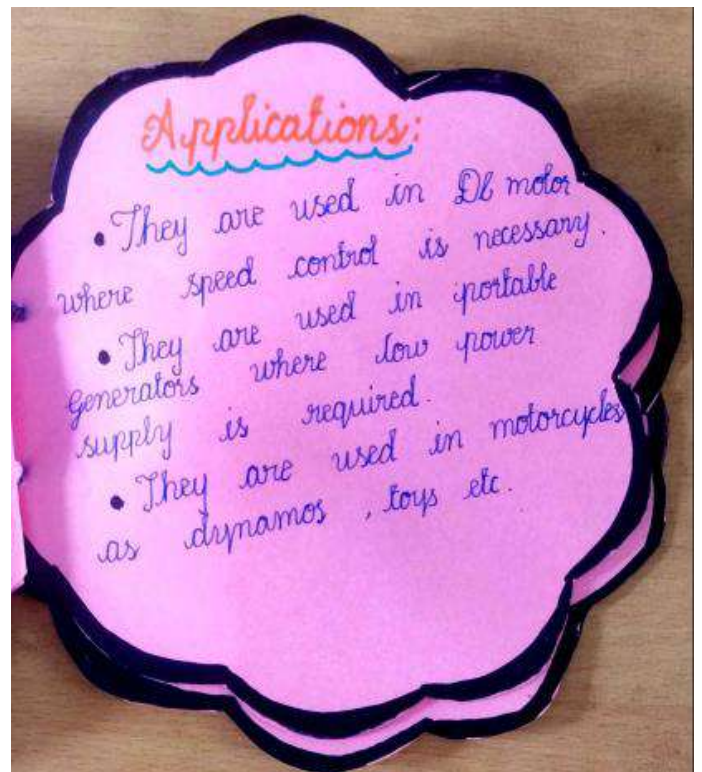 Applications:
• They are used in DC motor
where speed control is necessary.
• They are used in portable
Generators where low power
supply is required.
• They are used in motorcycles
as dynamos, toys etc.